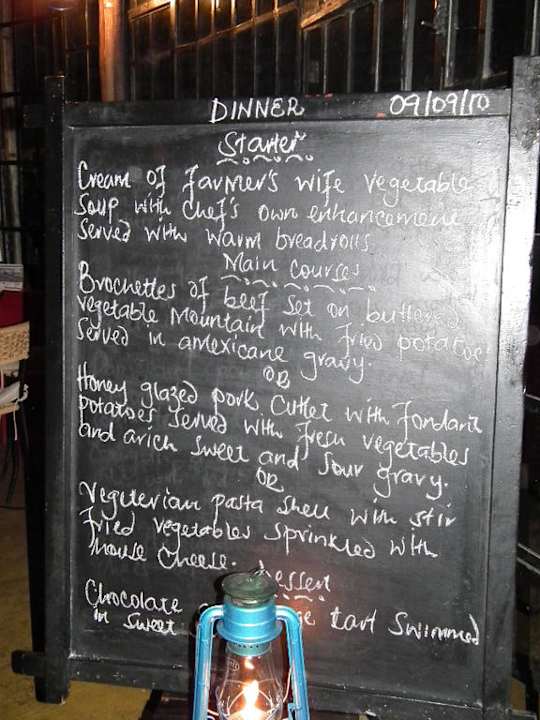 DINNER 09/09/10
Starter
Cream of farmer's wife vegetable
Soup with Chef's own enhancement
Served with warm breadrolls
Main Courses
Brochettes of beef set on
vegetable Mountain with fried potatoes
Served in amexicane gravy.
OR
Honey glazed pork Cutlet with Fondant
potatoes served with Fresh vegetables
and arich sweet and Sour gravy.
OR
Vegeterian pasta Shell with stir
fried vegetables sprinkled with
house Cheese.
Chocolate tart Swimmed
in sweet